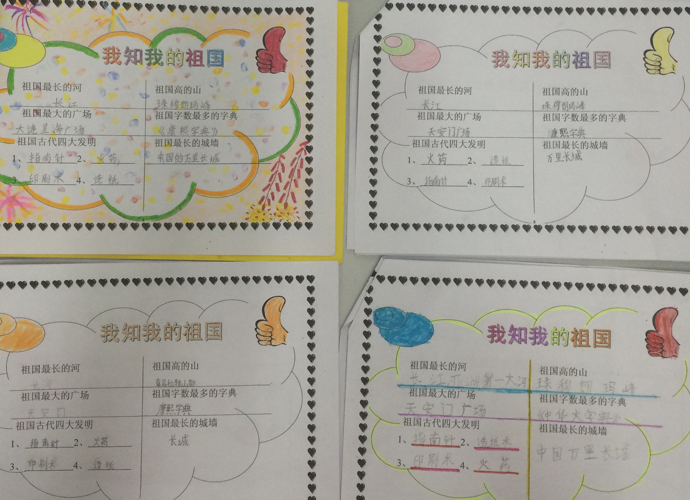 我知我的祖国
祖国最长的河 祖国高的山
长江 珠穆朗玛峰
祖国最大的广场 祖国字数最多的字典
大连星海广场 《康熙字典》
祖国古代四大发明 祖国最长的城墙
1、指南针 2、火药 中国的万里长城
3、印刷术 4、造纸
我知我的祖国
祖国最长的河 祖国高的山
长江 珠穆朗玛峰
祖国最大的广场 祖国字数最多的字典
天安门广场 康熙字典
祖国古代四大发明 祖国最长的城墙
1、火药 2、造纸 万里长城
3、指南针 4、印刷术
我知我的祖国
祖国最长的河 祖国高的山
长江
祖国最大的广场 祖国字数最多的字典
天安门 康熙字典
祖国古代四大发明 祖国最长的城墙
1、指南针 2、火药 长城
3、印刷术 4、造纸
我知我的祖国
祖国最长的河 祖国高的山
长江 第一大河 珠穆朗玛峰
祖国最大的广场 祖国字数最多的字典
天安门广场 中华大字典
祖国古代四大发明 祖国最长的城墙
1、指南针 2、造纸术 中国万里长城
3、印刷术 4、火药